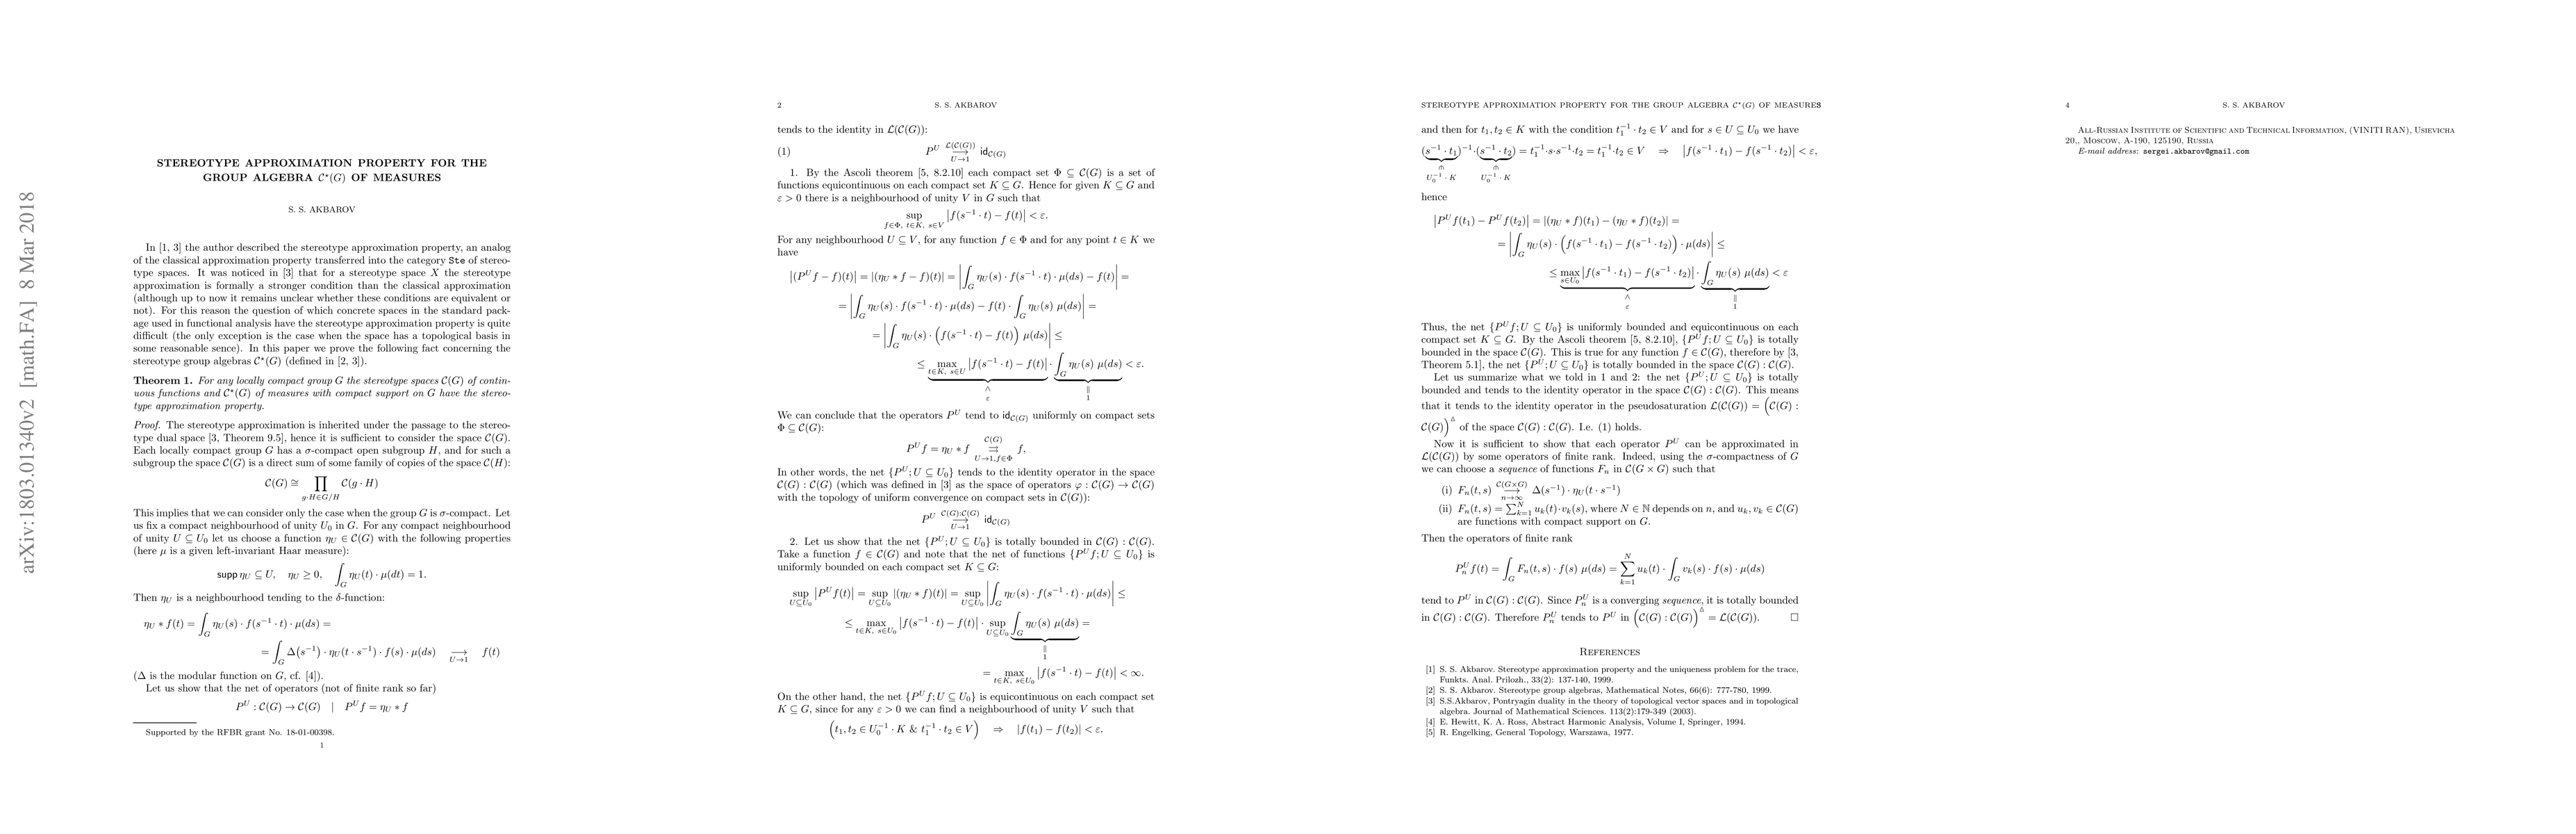 arXiv:1803.01340v2 [math.FA] 8 Mar 2018
STEREOTYPE APPROXIMATION PROPERTY FOR THE
GROUP ALGEBRA C⋆(G) OF MEASURES
S. S. AKBAROV
In [1, 3] the author described the stereotype approximation property, an analog
of the classical approximation property transferred into the category Ste of stereo-
type spaces. It was noticed in [3] that for a stereotype space X the stereotype
approximation is formally a stronger condition than the classical approximation
(although up to now it remains unclear whether these conditions are equivalent or
not). For this reason the question of which concrete spaces in the standard pack-
age used in functional analysis have the stereotype approximation property is quite
difficult (the only exception is the case when the space has a topological basis in
some reasonable sence). In this paper we prove the following fact concerning the
stereotype group algebras C⋆(G) (defined in [2, 3]).
Theorem 1. For any locally compact group G the stereotype spaces C(G) of contin-
uous functions and C⋆(G) of measures with compact support on G have the stereo-
type approximation property.
Proof. The stereotype approximation is inherited under the passage to the stereo-
type dual space [3, Theorem 9.5], hence it is sufficient to consider the space C(G).
Each locally compact group G has a σ-compact open subgroup H, and for such a
subgroup the space C(G) is a direct sum of some family of copies of the space C(H):
C(G) ≅ ∏ C(g · H)
g·H∈G/H
This implies that we can consider only the case when the group G is σ-compact. Let
us fix a compact neighbourhood of unity U₀ in G. For any compact neighbourhood
of unity U ⊆ U₀ let us choose a function η_U ∈ C(G) with the following properties
(here μ is a given left-invariant Haar measure):
supp η_U ⊆ U, η_U ≥ 0, ∫_G η_U(t) · μ(dt) = 1.
Then η_U is a neighbourhood tending to the δ-function:
η_U ∗ f(t) = ∫_G η_U(s) · f(s⁻¹ · t) · μ(ds) =
= ∫_G Δ(s⁻¹) · η_U(t · s⁻¹) · f(s) · μ(ds) ⟶ f(t)
U→1
(Δ is the modular function on G, cf. [4]).
Let us show that the net of operators (not of finite rank so far)
P^U : C(G) → C(G) | P^U f = η_U ∗ f
Supported by the RFBR grant No. 18-01-00398.
1
2 S. S. AKBAROV
tends to the identity in L(C(G)):
(1) P^U ⟶ id_C(G)
L(C(G))
U→1
1. By the Ascoli theorem [5, 8.2.10] each compact set Φ ⊆ C(G) is a set of
functions equicontinuous on each compact set K ⊆ G. Hence for given K ⊆ G and
ε > 0 there is a neighbourhood of unity V in G such that
sup |f(s⁻¹ · t) − f(t)| < ε.
f∈Φ, t∈K, s∈V
For any neighbourhood U ⊆ V, for any function f ∈ Φ and for any point t ∈ K we
have
|(P^U f − f)(t)| = |(η_U ∗ f − f)(t)| = |∫_G η_U(s) · f(s⁻¹ · t) · μ(ds) − f(t)| =
= |∫_G η_U(s) · f(s⁻¹ · t) · μ(ds) − f(t) · ∫_G η_U(s) μ(ds)| =
= |∫_G η_U(s) · (f(s⁻¹ · t) − f(t)) μ(ds)| ≤
≤ max |f(s⁻¹ · t) − f(t)| · ∫_G η_U(s) μ(ds) < ε.
t∈K, s∈U
∧ ∥
ε 1
We can conclude that the operators P^U tend to id_C(G) uniformly on compact sets
Φ ⊆ C(G):
P^U f = η_U ∗ f ⇉ f,
C(G)
U→1,f∈Φ
In other words, the net {P^U; U ⊆ U₀} tends to the identity operator in the space
C(G) : C(G) (which was defined in [3] as the space of operators φ : C(G) → C(G)
with the topology of uniform convergence on compact sets in C(G)):
P^U ⟶ id_C(G)
C(G):C(G)
U→1
2. Let us show that the net {P^U; U ⊆ U₀} is totally bounded in C(G) : C(G).
Take a function f ∈ C(G) and note that the net of functions {P^U f; U ⊆ U₀} is
uniformly bounded on each compact set K ⊆ G:
sup |P^U f(t)| = sup |(η_U ∗ f)(t)| = sup |∫_G η_U(s) · f(s⁻¹ · t) · μ(ds)| ≤
U⊆U₀ U⊆U₀ U⊆U₀
≤ max |f(s⁻¹ · t) − f(t)| · sup ∫_G η_U(s) μ(ds) =
t∈K, s∈U₀ U⊆U₀
∥
1
= max |f(s⁻¹ · t) − f(t)| < ∞.
t∈K, s∈U₀
On the other hand, the net {P^U f; U ⊆ U₀} is equicontinuous on each compact set
K ⊆ G, since for any ε > 0 we can find a neighbourhood of unity V such that
(t₁, t₂ ∈ U₀⁻¹ · K & t₁⁻¹ · t₂ ∈ V) ⇒ |f(t₁) − f(t₂)| < ε.
STEREOTYPE APPROXIMATION PROPERTY FOR THE GROUP ALGEBRA C⋆(G) OF MEASURES 3
and then for t₁, t₂ ∈ K with the condition t₁⁻¹ · t₂ ∈ V and for s ∈ U ⊆ U₀ we have
(s⁻¹ · t₁)⁻¹·(s⁻¹ · t₂) = t₁⁻¹·s·s⁻¹·t₂ = t₁⁻¹·t₂ ∈ V ⇒ |f(s⁻¹ · t₁) − f(s⁻¹ · t₂)| < ε,
U₀⁻¹ · K U₀⁻¹ · K
hence
|P^U f(t₁) − P^U f(t₂)| = |(η_U ∗ f)(t₁) − (η_U ∗ f)(t₂)| =
= |∫_G η_U(s) · (f(s⁻¹ · t₁) − f(s⁻¹ · t₂)) · μ(ds)| ≤
≤ max |f(s⁻¹ · t₁) − f(s⁻¹ · t₂)| · ∫_G η_U(s) μ(ds) < ε
s∈U₀
∧ ∥
ε 1
Thus, the net {P^U f; U ⊆ U₀} is uniformly bounded and equicontinuous on each
compact set K ⊆ G. By the Ascoli theorem [5, 8.2.10], {P^U f; U ⊆ U₀} is totally
bounded in the space C(G). This is true for any function f ∈ C(G), therefore by [3,
Theorem 5.1], the net {P^U; U ⊆ U₀} is totally bounded in the space C(G) : C(G).
Let us summarize what we told in 1 and 2: the net {P^U; U ⊆ U₀} is totally
bounded and tends to the identity operator in the space C(G) : C(G). This means
that it tends to the identity operator in the pseudosaturation L(C(G)) = (C(G) :
C(G))^△ of the space C(G) : C(G). I.e. (1) holds.
Now it is sufficient to show that each operator P^U can be approximated in
L(C(G)) by some operators of finite rank. Indeed, using the σ-compactness of G
we can choose a sequence of functions F_n in C(G × G) such that
(i) F_n(t, s) ⟶ Δ(s⁻¹) · η_U(t · s⁻¹)
C(G×G)
n→∞
(ii) F_n(t, s) = ∑_{k=1}^N u_k(t)·v_k(s), where N ∈ ℕ depends on n, and u_k, v_k ∈ C(G)
are functions with compact support on G.
Then the operators of finite rank
P_n^U f(t) = ∫_G F_n(t, s) · f(s) μ(ds) = ∑_{k=1}^N u_k(t) · ∫_G v_k(s) · f(s) · μ(ds)
tend to P^U in C(G) : C(G). Since P_n^U is a converging sequence, it is totally bounded
in C(G) : C(G). Therefore P_n^U tends to P^U in (C(G) : C(G))^△ = L(C(G)). □
References
[1] S. S. Akbarov. Stereotype approximation property and the uniqueness problem for the trace,
Funkts. Anal. Prilozh., 33(2): 137-140, 1999.
[2] S. S. Akbarov. Stereotype group algebras, Mathematical Notes, 66(6): 777-780, 1999.
[3] S.S.Akbarov, Pontryagin duality in the theory of topological vector spaces and in topological
algebra. Journal of Mathematical Sciences. 113(2):179-349 (2003).
[4] E. Hewitt, K. A. Ross, Abstract Harmonic Analysis, Volume I, Springer, 1994.
[5] R. Engelking, General Topology, Warszawa, 1977.
4 S. S. AKBAROV
All-Russian Institute of Scientific and Technical Information, (VINITI RAN), Usievicha
20,, Moscow, A-190, 125190, Russia
E-mail address: sergei.akbarov@gmail.com